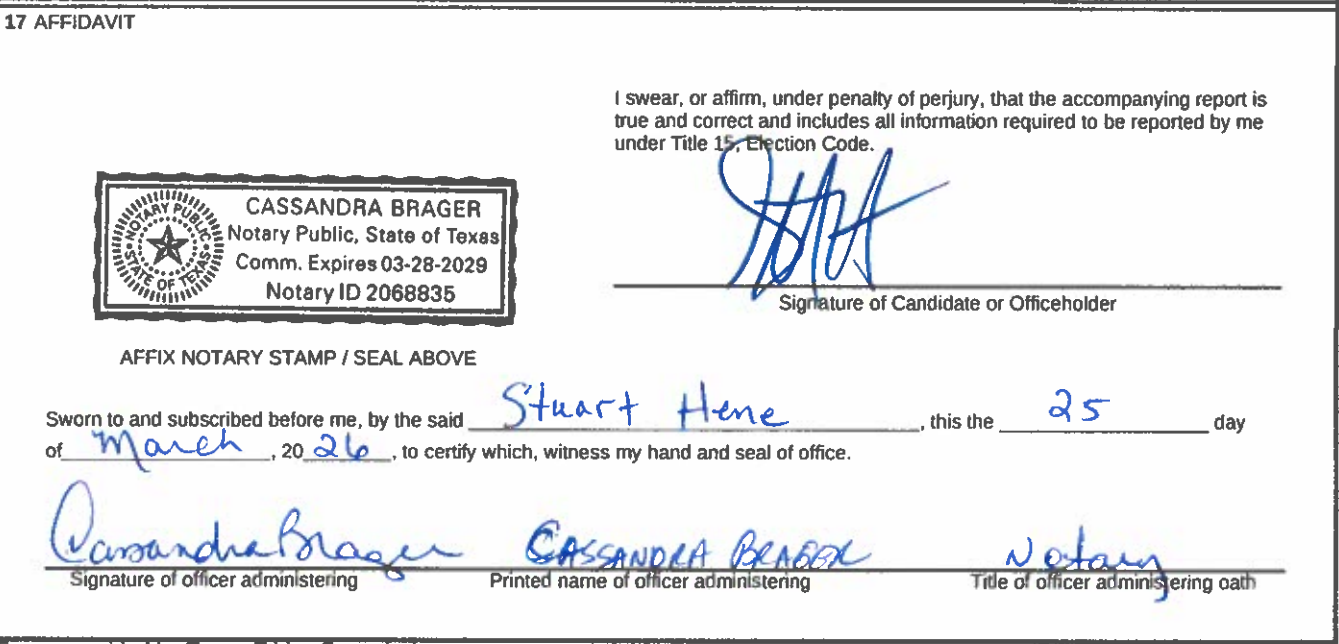 17 AFFIDAVIT
I swear, or affirm, under penalty of perjury, that the accompanying report is
true and correct and includes all information required to be reported by me
under Title 15, Election Code.
NOTARY PUBLIC
STATE OF TEXAS
CASSANDRA BRAGER
Notary Public, State of Texas
Comm. Expires 03-28-2029
Notary ID 2068835
Signature of Candidate or Officeholder
AFFIX NOTARY STAMP / SEAL ABOVE
Sworn to and subscribed before me, by the said Stuart Hene, this the 25 day
of March, 20 26, to certify which, witness my hand and seal of office.
Cassandra Brager CASSANDRA BRAGER Notary
Signature of officer administering Printed name of officer administering Title of officer administering oath